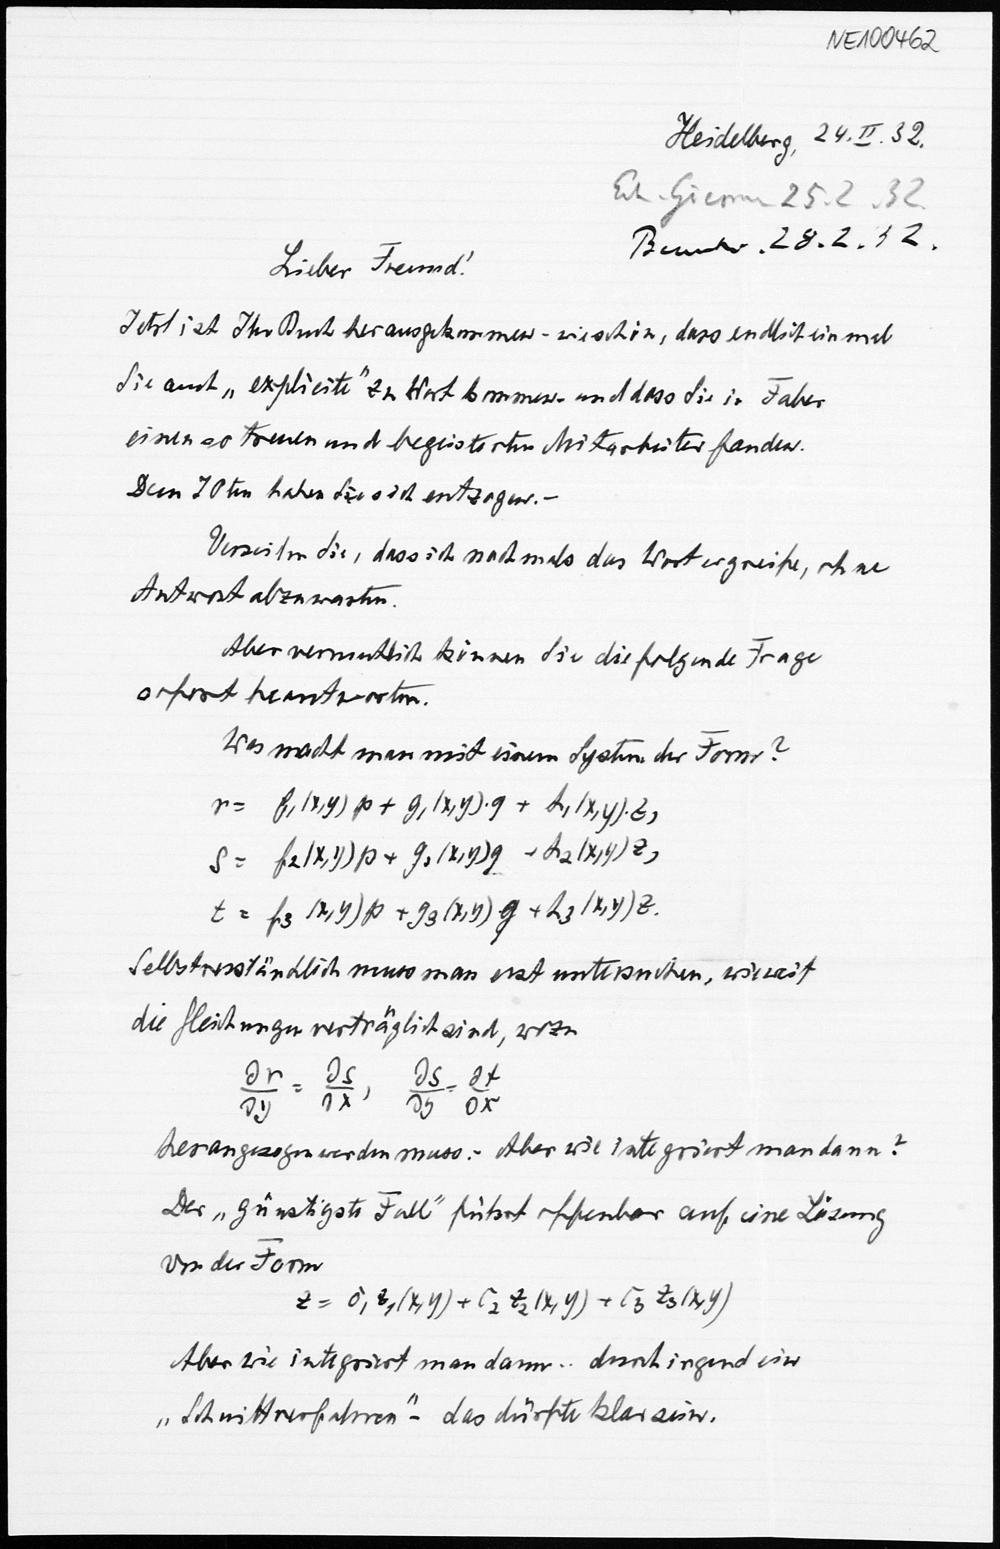 NE100462
Heidelberg, 24.II.32.
25.2.32.
28.2.32.
Lieber Freund!
Jetzt ist Ihr Buch herausgekommen - wie schön, dass endlich einmal
Sie auch „explicite" zu Wort kommen - und dass Sie in Faber
einen so treuen und begeisterten Mitarbeiter fanden.
Dem 70ten haben Sie sich entzogen. -
Verzeihen Sie, dass ich nochmals das Wort ergreife, ohne
Antwort abzuwarten.
Aber vermutlich können Sie die folgende Frage
sofort beantworten.
Was macht man mit einem System der Form?
r = f₁(x,y) p + g₁(x,y)·q + h₁(x,y)·z,
s = f₂(x,y) p + g₂(x,y) q + h₂(x,y) z,
t = f₃(x,y) p + g₃(x,y) q + h₃(x,y) z.
Selbstverständlich muss man erst untersuchen, wieweit
die Gleichungen verträglich sind, wozu
∂r/∂y = ∂s/∂x, ∂s/∂y = ∂t/∂x
herangezogen werden muss. - Aber wie integriert man dann?
Der „günstigste Fall" führt offenbar auf eine Lösung
von der Form
z = c₁ z₁(x,y) + c₂ z₂(x,y) + c₃ z₃(x,y)
Aber wie integriert man dann .. durch irgend ein
„Schnittverfahren" - das dürfte klar sein.